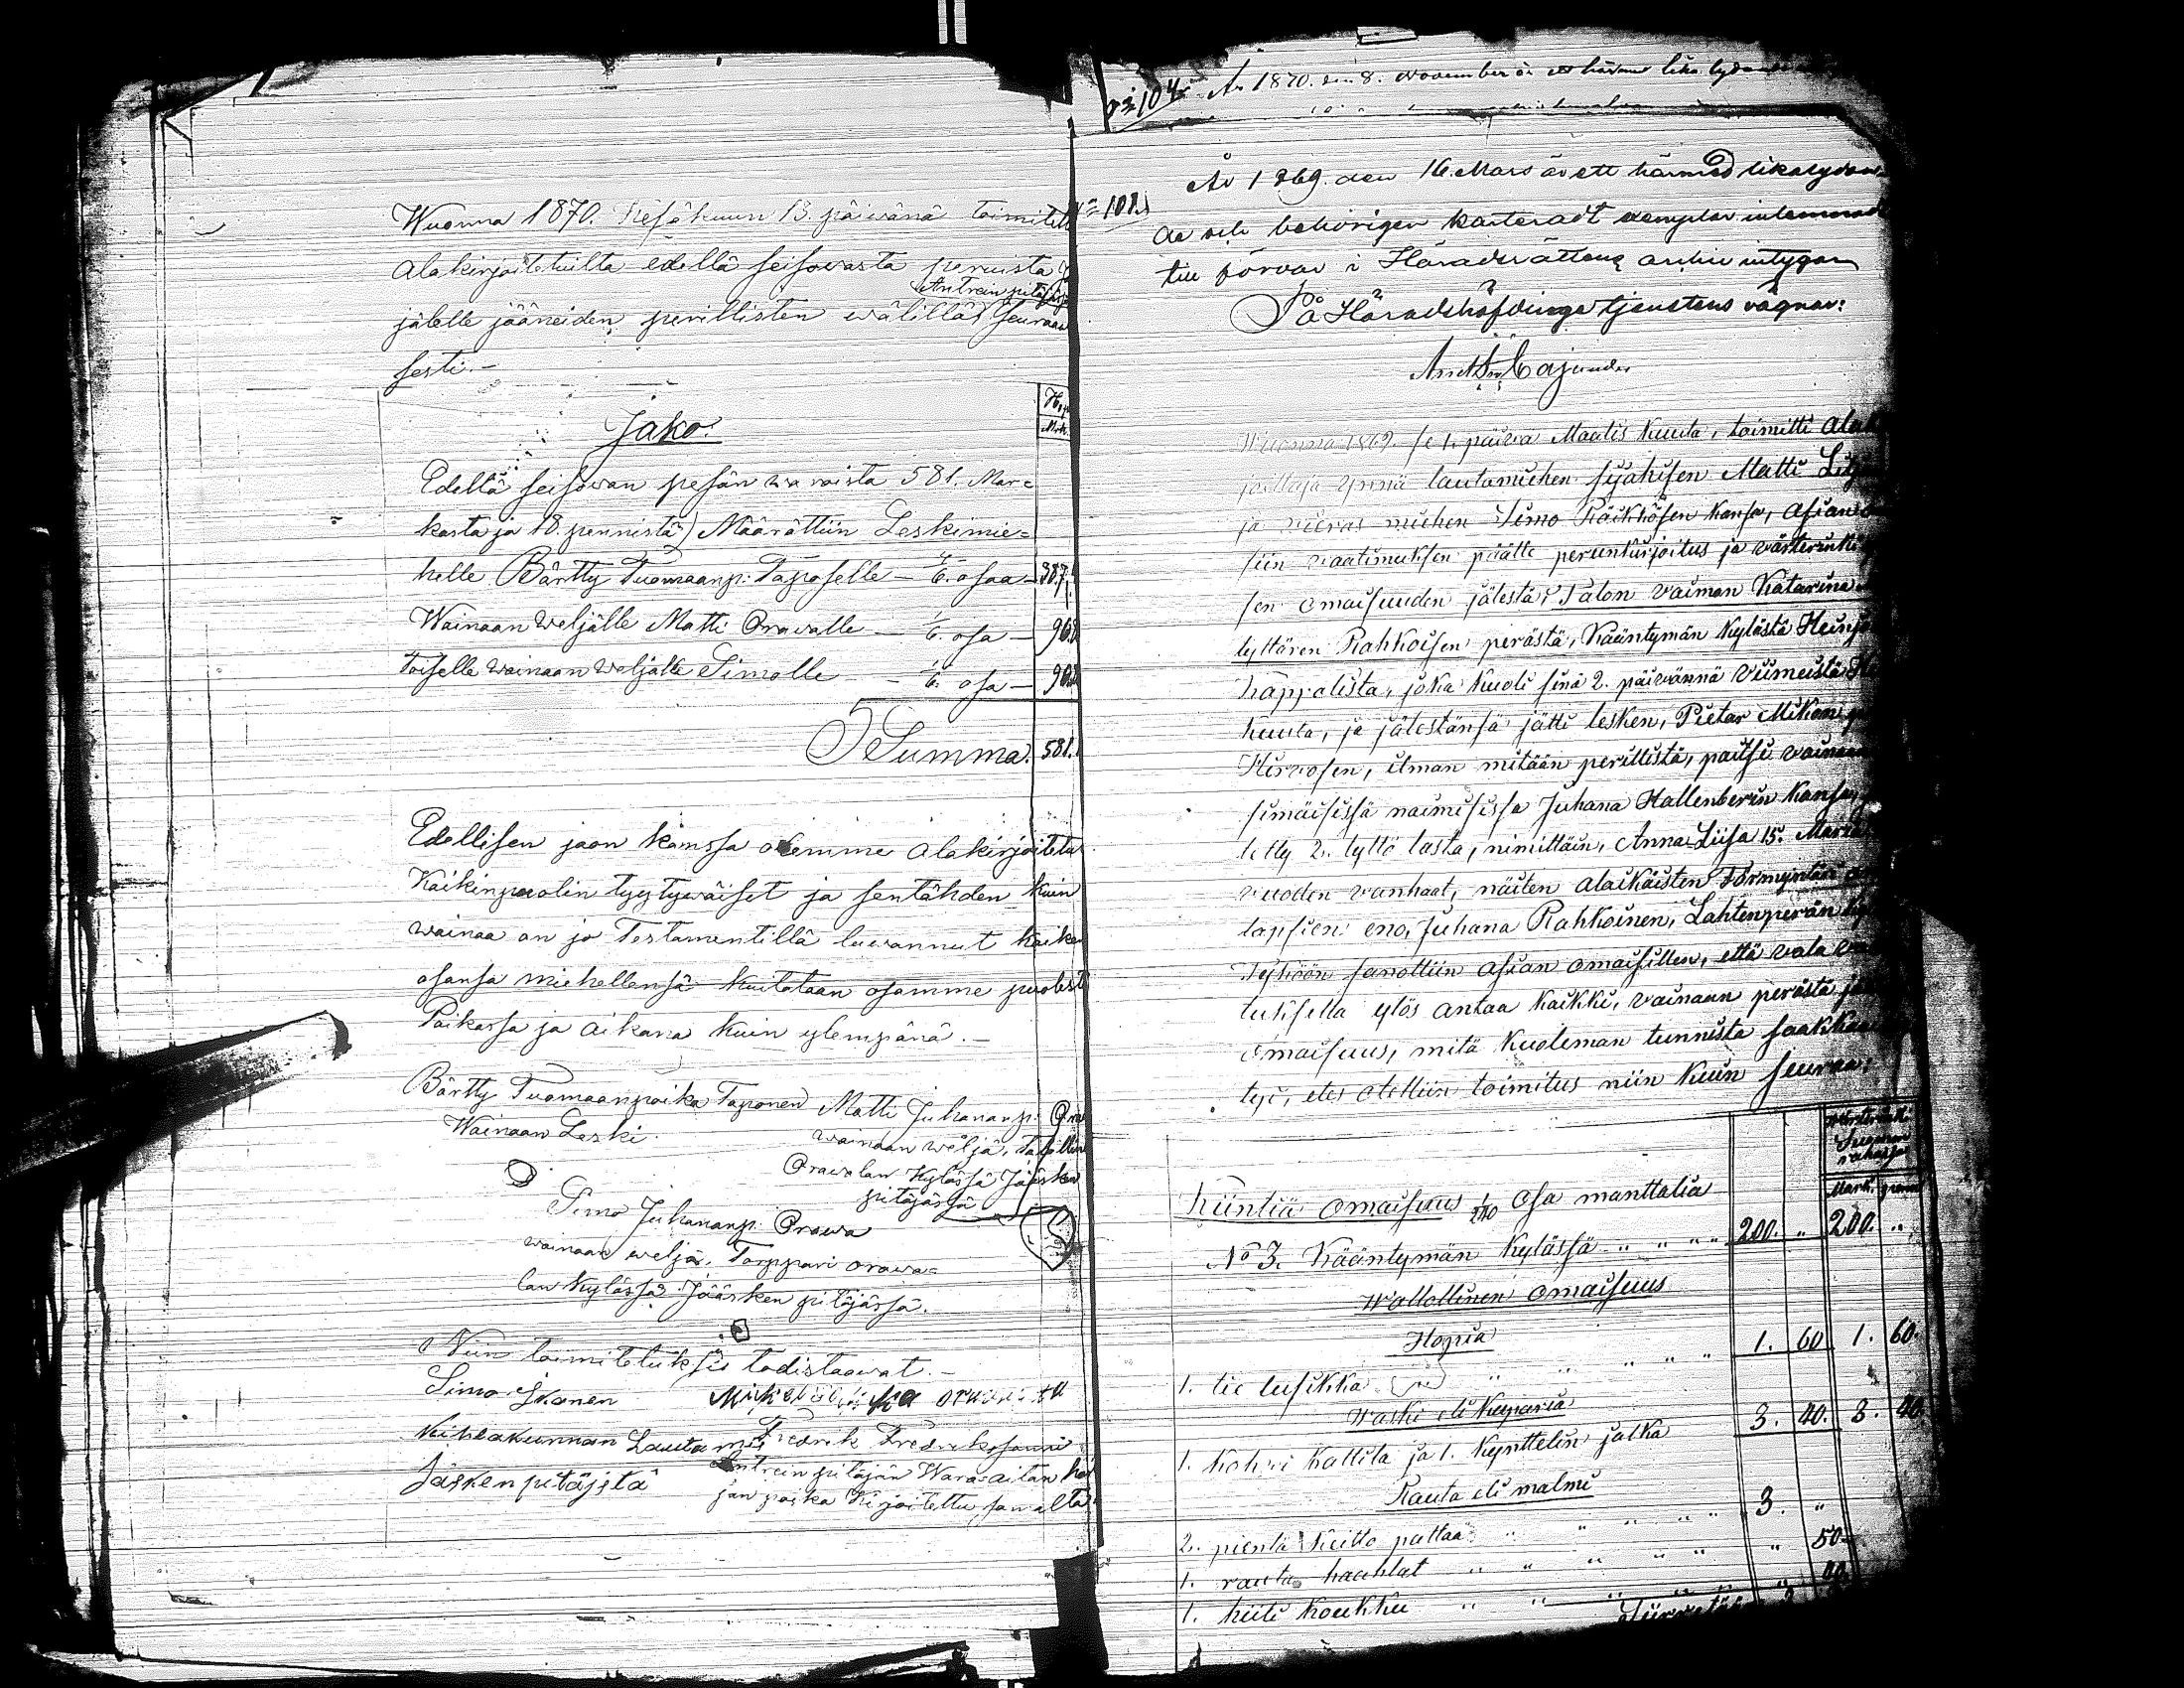 Wuonna 1870. Kesäkuun 13. päivänä toimitett
alakirjoitetuilta edellä seisowasta peruista
Antrean pitäjäs
jälelle jääneiden perillisten wälillä seuraa
sesti.-
Jako.
Mrk.
Edellä seisowan pesän waroista 581. Mar=
kasta ja 18. pennistä) Määrättiin Leskimie=
helle Bärtty Tuomaanp: Taposelle - 4/6. osaa - 387.
Wainaan Weljälle Matti Orawalle - 1/6. osa - 96.
toiselle wainaan weljälle Simolle - 1/6. osa - 96.
Summa. 581.
Edellisen jaon kanssa olemme alakirjoitetu
Kaikinpuolin tyytywäiset ja sentähden kuin
wainaa on jo Testamentillä luwannut kaike
osansa miehellensä kuitataan osamme puolest
Paikassa ja aikana kuin ylempänä.-
Bärtty Tuomaanpoika Taponen
Wainaan Leski.
Matti Juhananp: Ora
wainaan welja, talollin
Orawalan Kylässä Jääsken
pitäjässä
Simo Juhananp: Orawa
wainaan welja. Torppari orawa=
lan Kylässä Jääsken pitäjässä.
Niin toimitetuksi todistaawat.-
Simo Ikonen
kihlakunnan Lautamies
Jäsken pitäjstä
Fredrik Fredrikssonni
Antrein pitäjän Wara aitan hoi
jan poika Kirjoitettu samalta
№ 104 År 1870. den 8. November är ett härmed lika lydande
№ 101.
År 1869. den 16 Mars är ett härmed likalydan
de och behörigen karteradt exemplar inlemnadt
till förvar i Häradsrättens arkiv intygar
På Häradshöfdinge tjenstens vägnar:
Cajander
Wuonna 1869 se 1. päivä Maalis kuuta, toimitti Alak
joittaja ynnä lautamiehen sijaisen Matti
ja vieras miehen Simo Räikkösen kansa, asian
siin vaatimuksen päälle perunkirjoitus ja värterinki
sen omaisuuden jälestä Talon vaimon Katarina
tyttären Rahkoisen perästä, Kääntymän Kylästä Heinjo
kappalista, joka kuoli sinä 2. päivännä viimeistä
kuuta, ja jälestänsä jätti lesken, Pietar Mikon p
Hirvosen, ilman mitään perillistä, paitsi vainaan
simäisissä naimisissa Juhana Hallenberin kansa
tetty 2. tyttö lasta, nimittäin, Anna Liisa 15. Maria
vuoden vanhaat, näiten alaikäisten Förmyntäri
lapsien eno, Juhana Rahkoinen, Lahtenperän
sanottiin asian omaisillen, että vala
tuksella ylös antaa kaikki, vainaan perästä
omaisuus, mitä kuoleman tunnista saakka
tyi, etes otettiin toimitus niin kuun seuraa:
Mark. penni
Kiintiä omaisuus 1/240 osa manttalia
No 3. Kääntymän Kylässä " " " " 200. " 200. "
Wallollinen omaisuus
Hopia
1. tie lusikka " " " " " 1. 60 1. 60.
Waski eli Kuparia
1. kahvi kattila ja 1. kynttelin jalka 3. 40. 3. 40.
Rauta eli malmi
2. pientä keitto pattaa " " " " " 3. "
1. rauta haahlat " " " " " " 50
1. kiiti koukku " " " " "